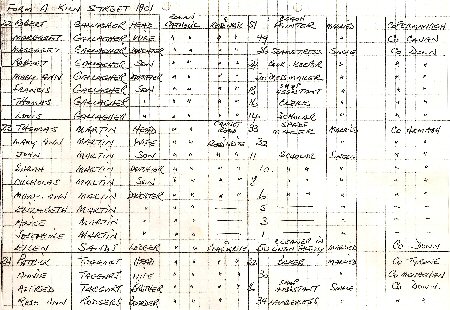 FORM A KILN STREET 1901
22 ROBERT GALLAGHER HEAD ROMAN CATHOLIC READ & WRITE 51 PAINTER MARRIED CO FERMANAGH
MARGARET GALLAGHER WIFE " " " 49 " CO CAVAN
MARGARET GALLAGHER DAUGHTER " " " 26 SEAMSTRESS SINGLE CO DOWN
ROBERT GALLAGHER SON " " "
MARY ANN GALLAGHER DAUGHTER " " " DRESSMAKER
FRANCIS GALLAGHER SON " " " 18 SHOP ASSISTANT
THOMAS GALLAGHER " " " " 16 CLERK
LOUIS GALLAGHER " " " " 14 SCHOLAR
23 THOMAS MARTIN HEAD " " CANNOT READ 38 SPADE MAKER MARRIED CO ARMAGH
MARY ANN MARTIN WIFE " " READ & WRITE 32
JOHN MARTIN SON " " " 11 SCHOLAR SINGLE
SARAH MARTIN DAUGHTER " " " 10 " "
NICHOLAS MARTIN SON " " " 8
MARY ANN MARTIN DAUGHTER " " 6
ELIZABETH MARTIN " " " 5
MARTIN " " " 3
JOSEPHINE MARTIN " " " 1
EILEEN LODGER " " CLEANER IN MARRIED CO DOWN
24 PATRICK TAGGART HEAD " " " BAKER MARRIED CO TYRONE
ANNIE TAGGART WIFE " " " CO MONAGHAN
ALFRED TAGGART BROTHER " " " SHOP ASSISTANT SINGLE CO DOWN
ROSE ANN RODGERS BOARDER " " " 34